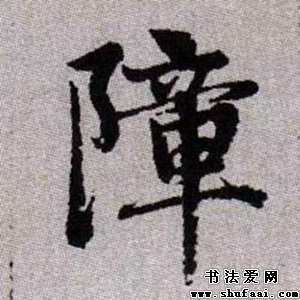 障
书法爱网
www.shufaai.com